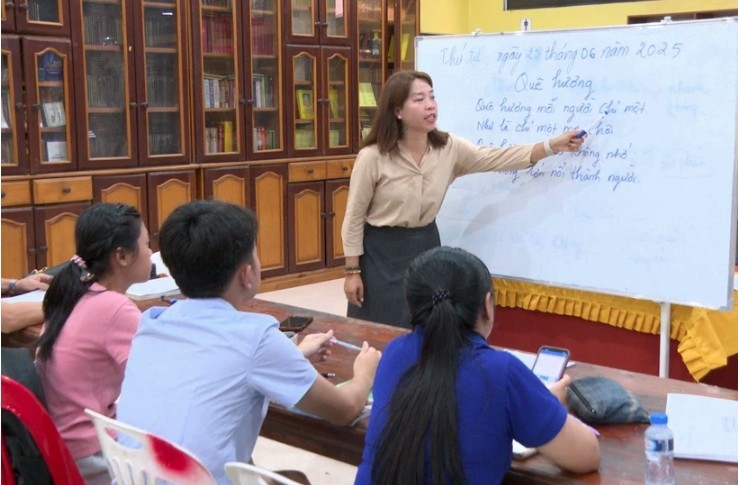 Thứ tư ngày 25 tháng 06 năm 2025
Quê hương
Quê hương mỗi người chỉ một
Như là chỉ một mẹ thôi
không nhớ
lớn nổi thành người.